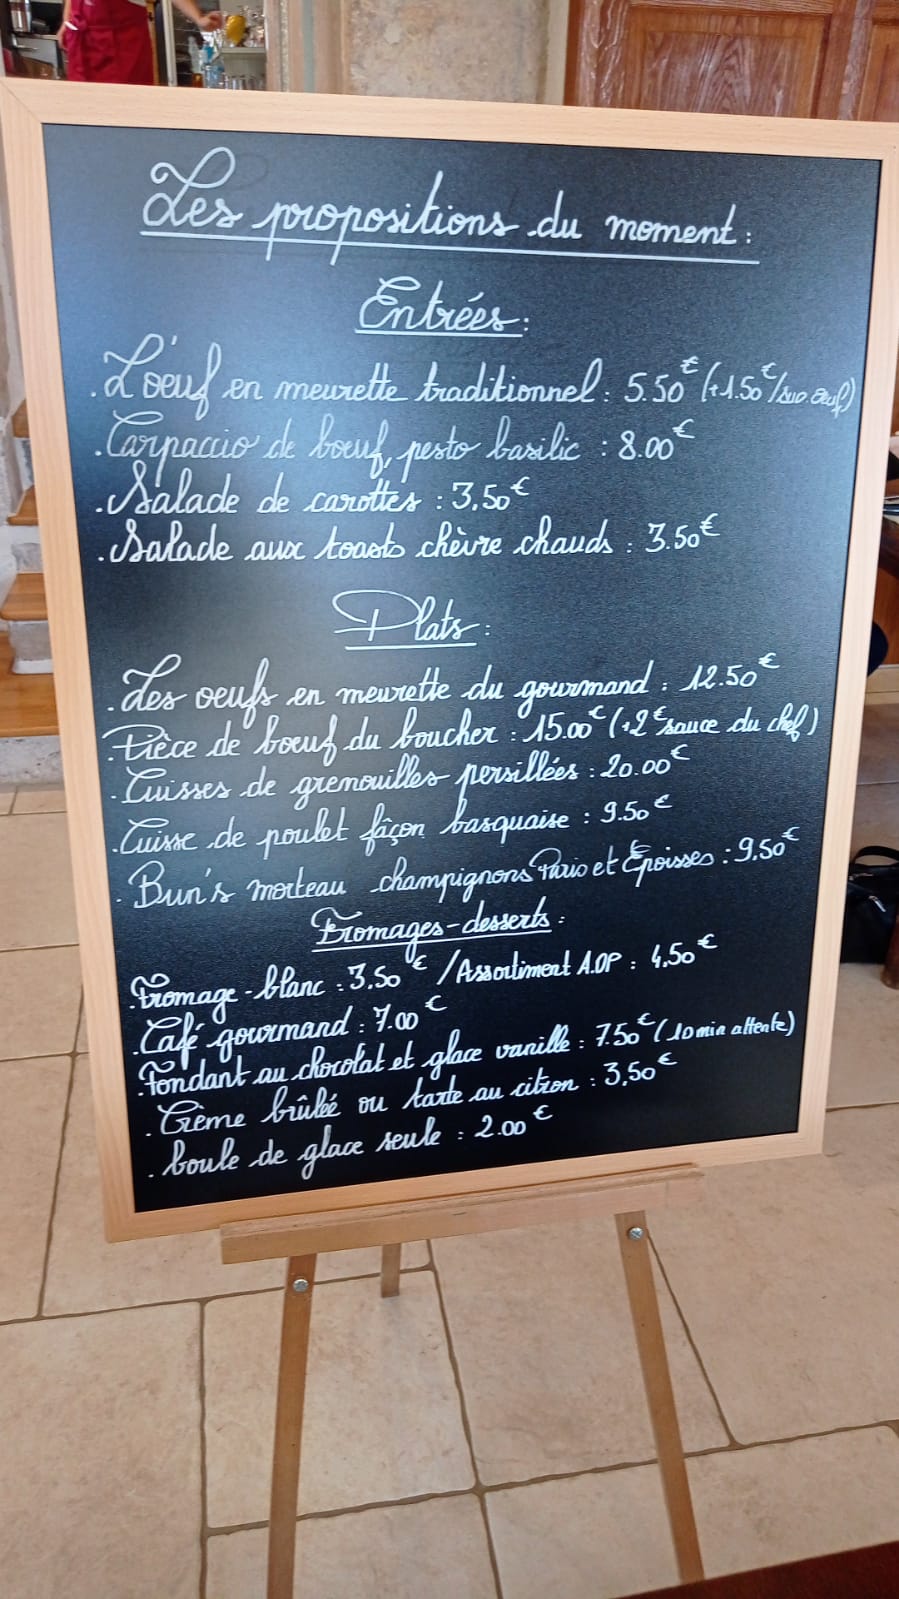 Les propositions du moment :
Entrées :
. L'oeuf en meurette traditionnel : 5.50€ (+1.50€/sup. oeuf)
. Carpaccio de boeuf, pesto basilic : 8.00€
. Salade de carottes : 3,50€
. Salade aux toasts chèvre chauds : 3.50€
Plats :
. Les oeufs en meurette du gourmand : 12.50€
. Pièce de boeuf du boucher : 15.00€ (+2€ sauce du chef)
. Cuisses de grenouilles persillées : 20.00€
. Cuisse de poulet fâçon basquaise : 9.50€
. Bun's morteau champignons Paris et Époisses : 9,50€
Fromages-desserts :
. Fromage-blanc : 3,50€ / Assortiment A.OP : 4,50€
. Café gourmand : 7.00€
. Fondant au chocolat et glace vanille : 7.50€ (10min attente)
. Crème brûlée ou tarte au citron : 3,50€
. boule de glace seule : 2.00€